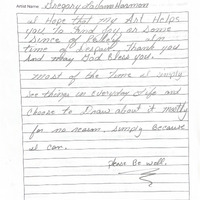 Artist Name: Gregory LaDonn Harmon
I Hope that my Art Helps
you to find joy or some
sense of Relief in
time of Despair. Thank you
and may God Bless you.
most of the Time I simply
see things in everyday Life and
choose to Draw about it mostly
for no reason, simply because
I can.
Please Be well.